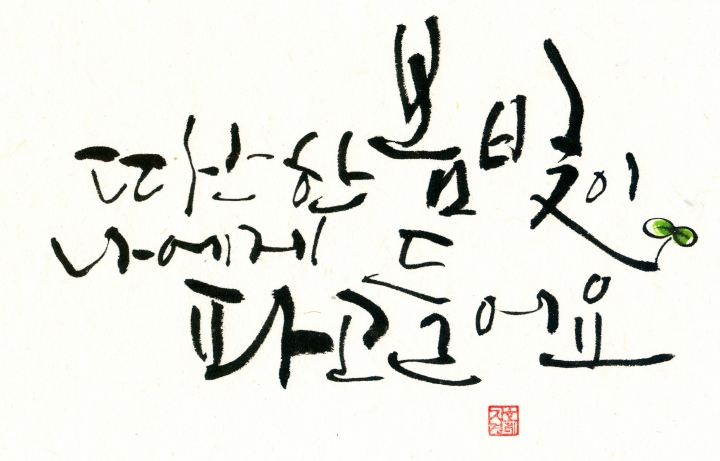 따산한 봄빛이
나에게
파고들어요